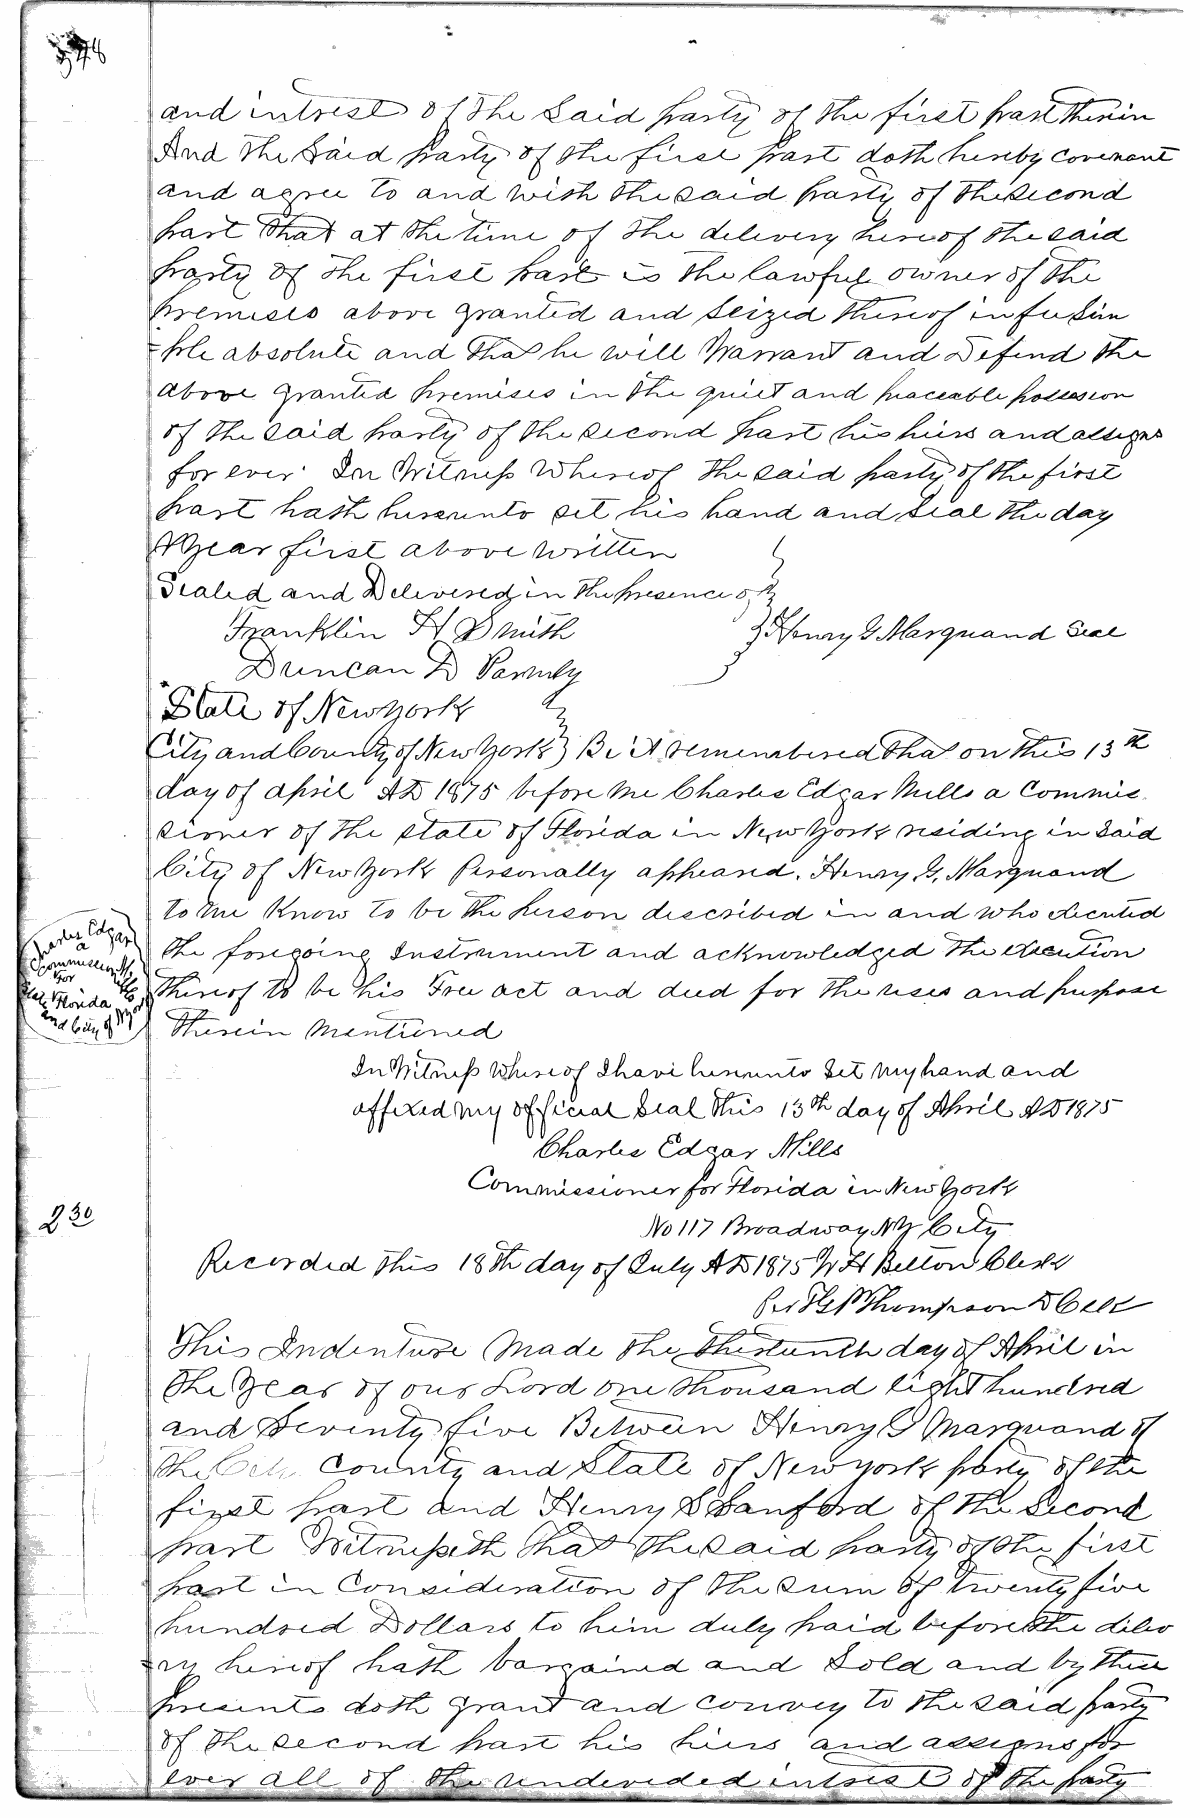 348
and intrest of the Said party of the first part therin
And the Said party of the first part doth hereby covenant
and agree to and with the said party of the second
part that at the time of the delivery hereof the said
party of the first part is the lawful owner of the
premises above granted and Seized thereof in fee Sim
-ple absolute and that he will Warrant and Defend the
above granted premises in the quiet and peaceable possession
of the said party of the second part his heirs and assigns
for ever In Witness Whereof the said party of the first
part hath hereunto set his hand and Seal the day
& Year first above written
Sealed and Delivered in the presence of
Franklin H Smith
Henry G Marquand Seal
Duncan D Parmly
State of New York
City and County of New York } Be it remembered that on this 13th
day of April AD 1875 before me Charles Edgar Mills a Commis
sioner of the state of Florida in New York residing in Said
City of New York Personally appeared. Henry G. Marquand
to me Know to be the person described in and who executed
the foregoing Instrument and acknowledged the execution
thereof to be his Free act and deed for the uses and purpose
therein mentioned
Charles Edgar
a
Commissioner Mills
for
State Florida
and City of NYork
In Witness Whereof I have hereunto Set my hand and
affixed my official Seal this 13th day of April AD 1875
Charles Edgar Mills
Commissioner for Florida in New York
No 117 Broadway NY City
2 30
Recorded this 18th day of July AD 1875 W H Belton Clerk
Per Thompson D Celk
This Indenture Made the thirteenth day of April in
the Year of our Lord one thousand eight hundred
and Seventy five Between Henry G Marquand of
the City County and State of New York party of the
first part and Henry S Sanford of the Second
part Witnesseth that the said party of the first
part in Consideration of the sum of twenty five
hundred Dollars to him duly paid before the delev
-ry hereof hath bargained and Sold and by these
presents doth grant and convey to the said party
of the second part his hiers and assigns for
ever all of the undevided intrest of the party